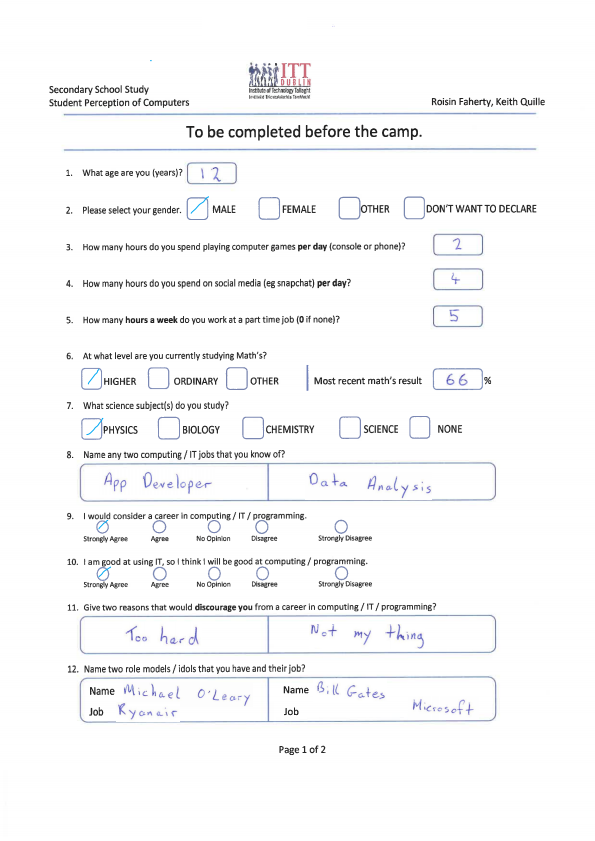 ITT
DUBLIN
Institute of Technology Tallaght
Secondary School Study
Student Perception of Computers
Roisin Faherty, Keith Quille
To be completed before the camp.
1. What age are you (years)? 12
2. Please select your gender. MALE FEMALE OTHER DON'T WANT TO DECLARE
3. How many hours do you spend playing computer games per day (console or phone)? 2
4. How many hours do you spend on social media (eg snapchat) per day? 4
5. How many hours a week do you work at a part time job (0 if none)? 5
6. At what level are you currently studying Math's?
HIGHER ORDINARY OTHER Most recent math's result 66 %
7. What science subject(s) do you study?
PHYSICS BIOLOGY CHEMISTRY SCIENCE NONE
8. Name any two computing / IT jobs that you know of?
App Developer Data Analysis
9. I would consider a career in computing / IT / programming.
Strongly Agree Agree No Opinion Disagree Strongly Disagree
10. I am good at using IT, so I think I will be good at computing / programming.
Strongly Agree Agree No Opinion Disagree Strongly Disagree
11. Give two reasons that would discourage you from a career in computing / IT / programming?
Too hard Not my thing
12. Name two role models / idols that you have and their job?
Name Michael O'Leary Name Bill Gates
Job Ryanair Job Microsoft
Page 1 of 2